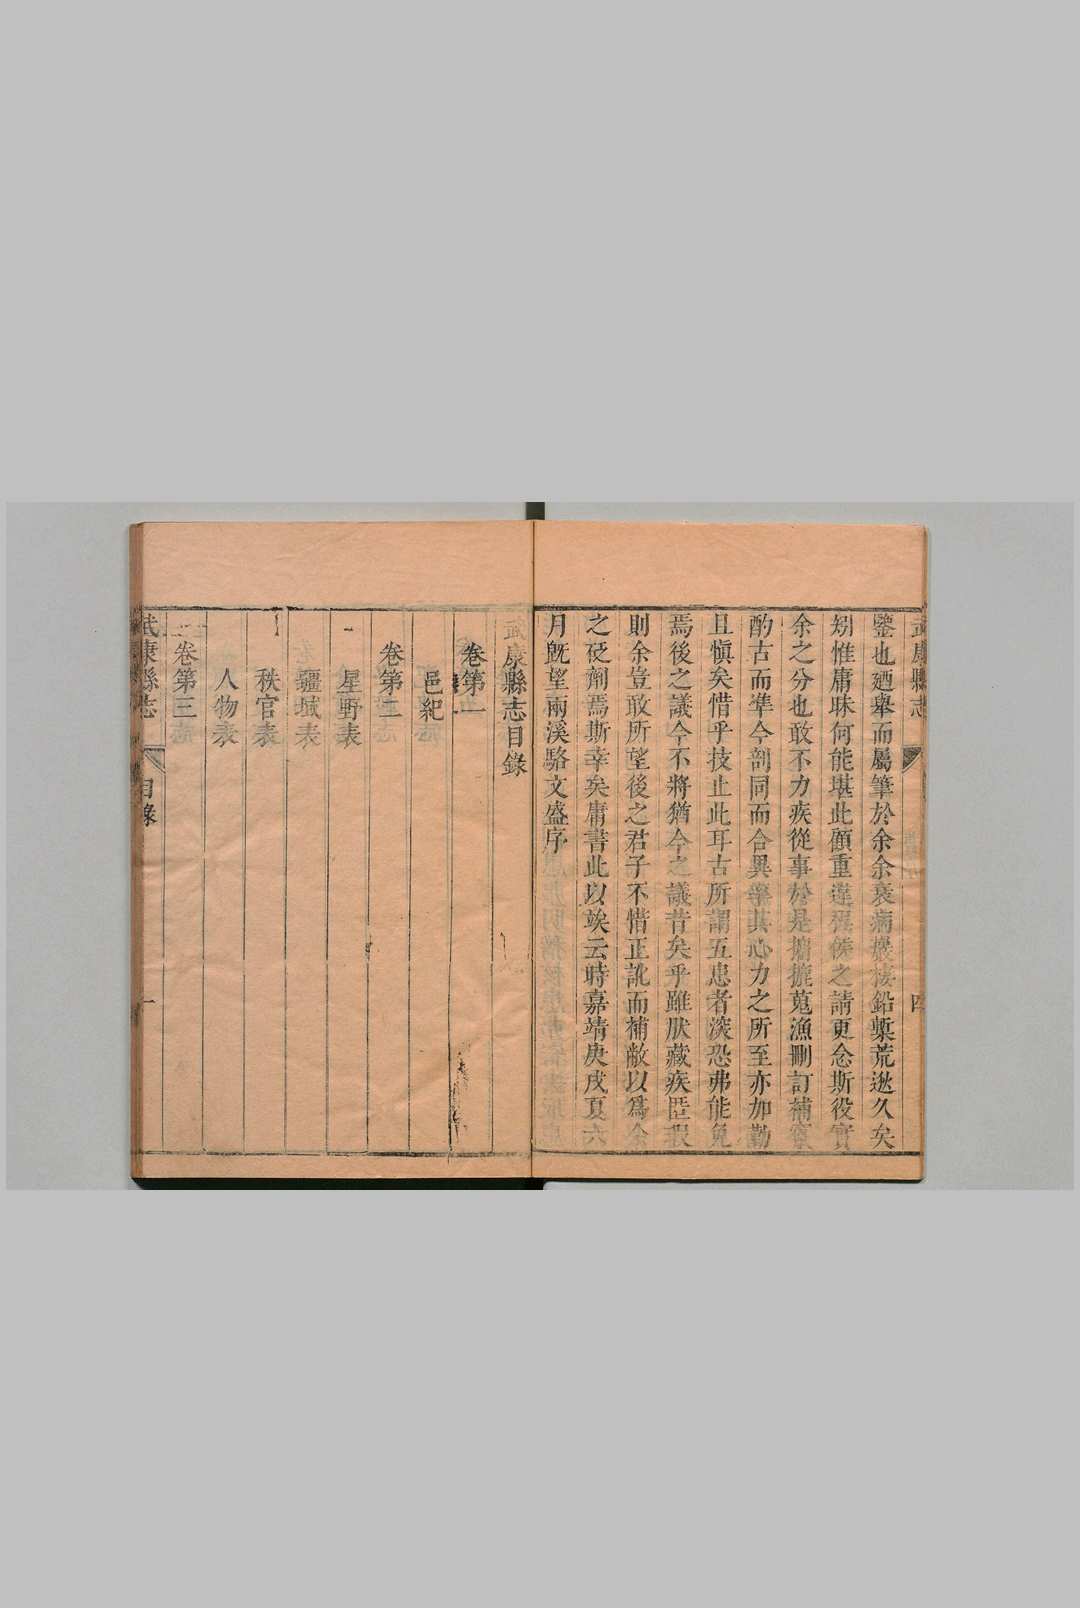 武康縣志
四
鑒也廼舉而屬筆於余余衰病巖棲鉛槧荒逖久矣
矧惟庸昧何能堪此顧重違程侯之請更念斯役實
余之分也敢不力疾從事於是攟摭蒐漁刪訂補
酌古而凖今剖同而合異殫其心力之所至亦加勤
且愼矣惜乎技止此耳古所謂五患者深恐弗能免
焉後之議今不將猶今之議昔矣乎雖肰藏疾匿瑕
則余豈敢所望後之君子不惜正訛而補敝以爲余
之砭劑焉斯幸矣庸書此以竢云時嘉靖庚戌夏六
月旣望兩溪駱文盛序
武康縣志目錄
卷第一
邑紀
卷第二
星野表
疆域表
秩官表
人物表
卷第三
武康縣志
目錄
一